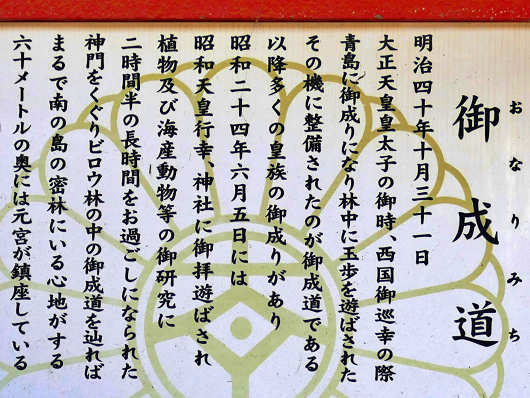 おなりみち
御成道
明治四十年十月三十一日
大正天皇皇太子の御時、西国御巡幸の際
青島に御成りになり林中に玉歩を遊ばされた
その機に整備されたのが御成道である
以降多くの皇族の御成りがあり
昭和二十四年六月五日には
昭和天皇行幸、神社に御拝遊ばされ
植物及び海産動物等の御研究に
二時間半の長時間をお過ごしになられた
神門をくぐりビロウ林の中の御成道を辿れば
まるで南の島の密林にいる心地がする
六十メートルの奥には元宮が鎮座している